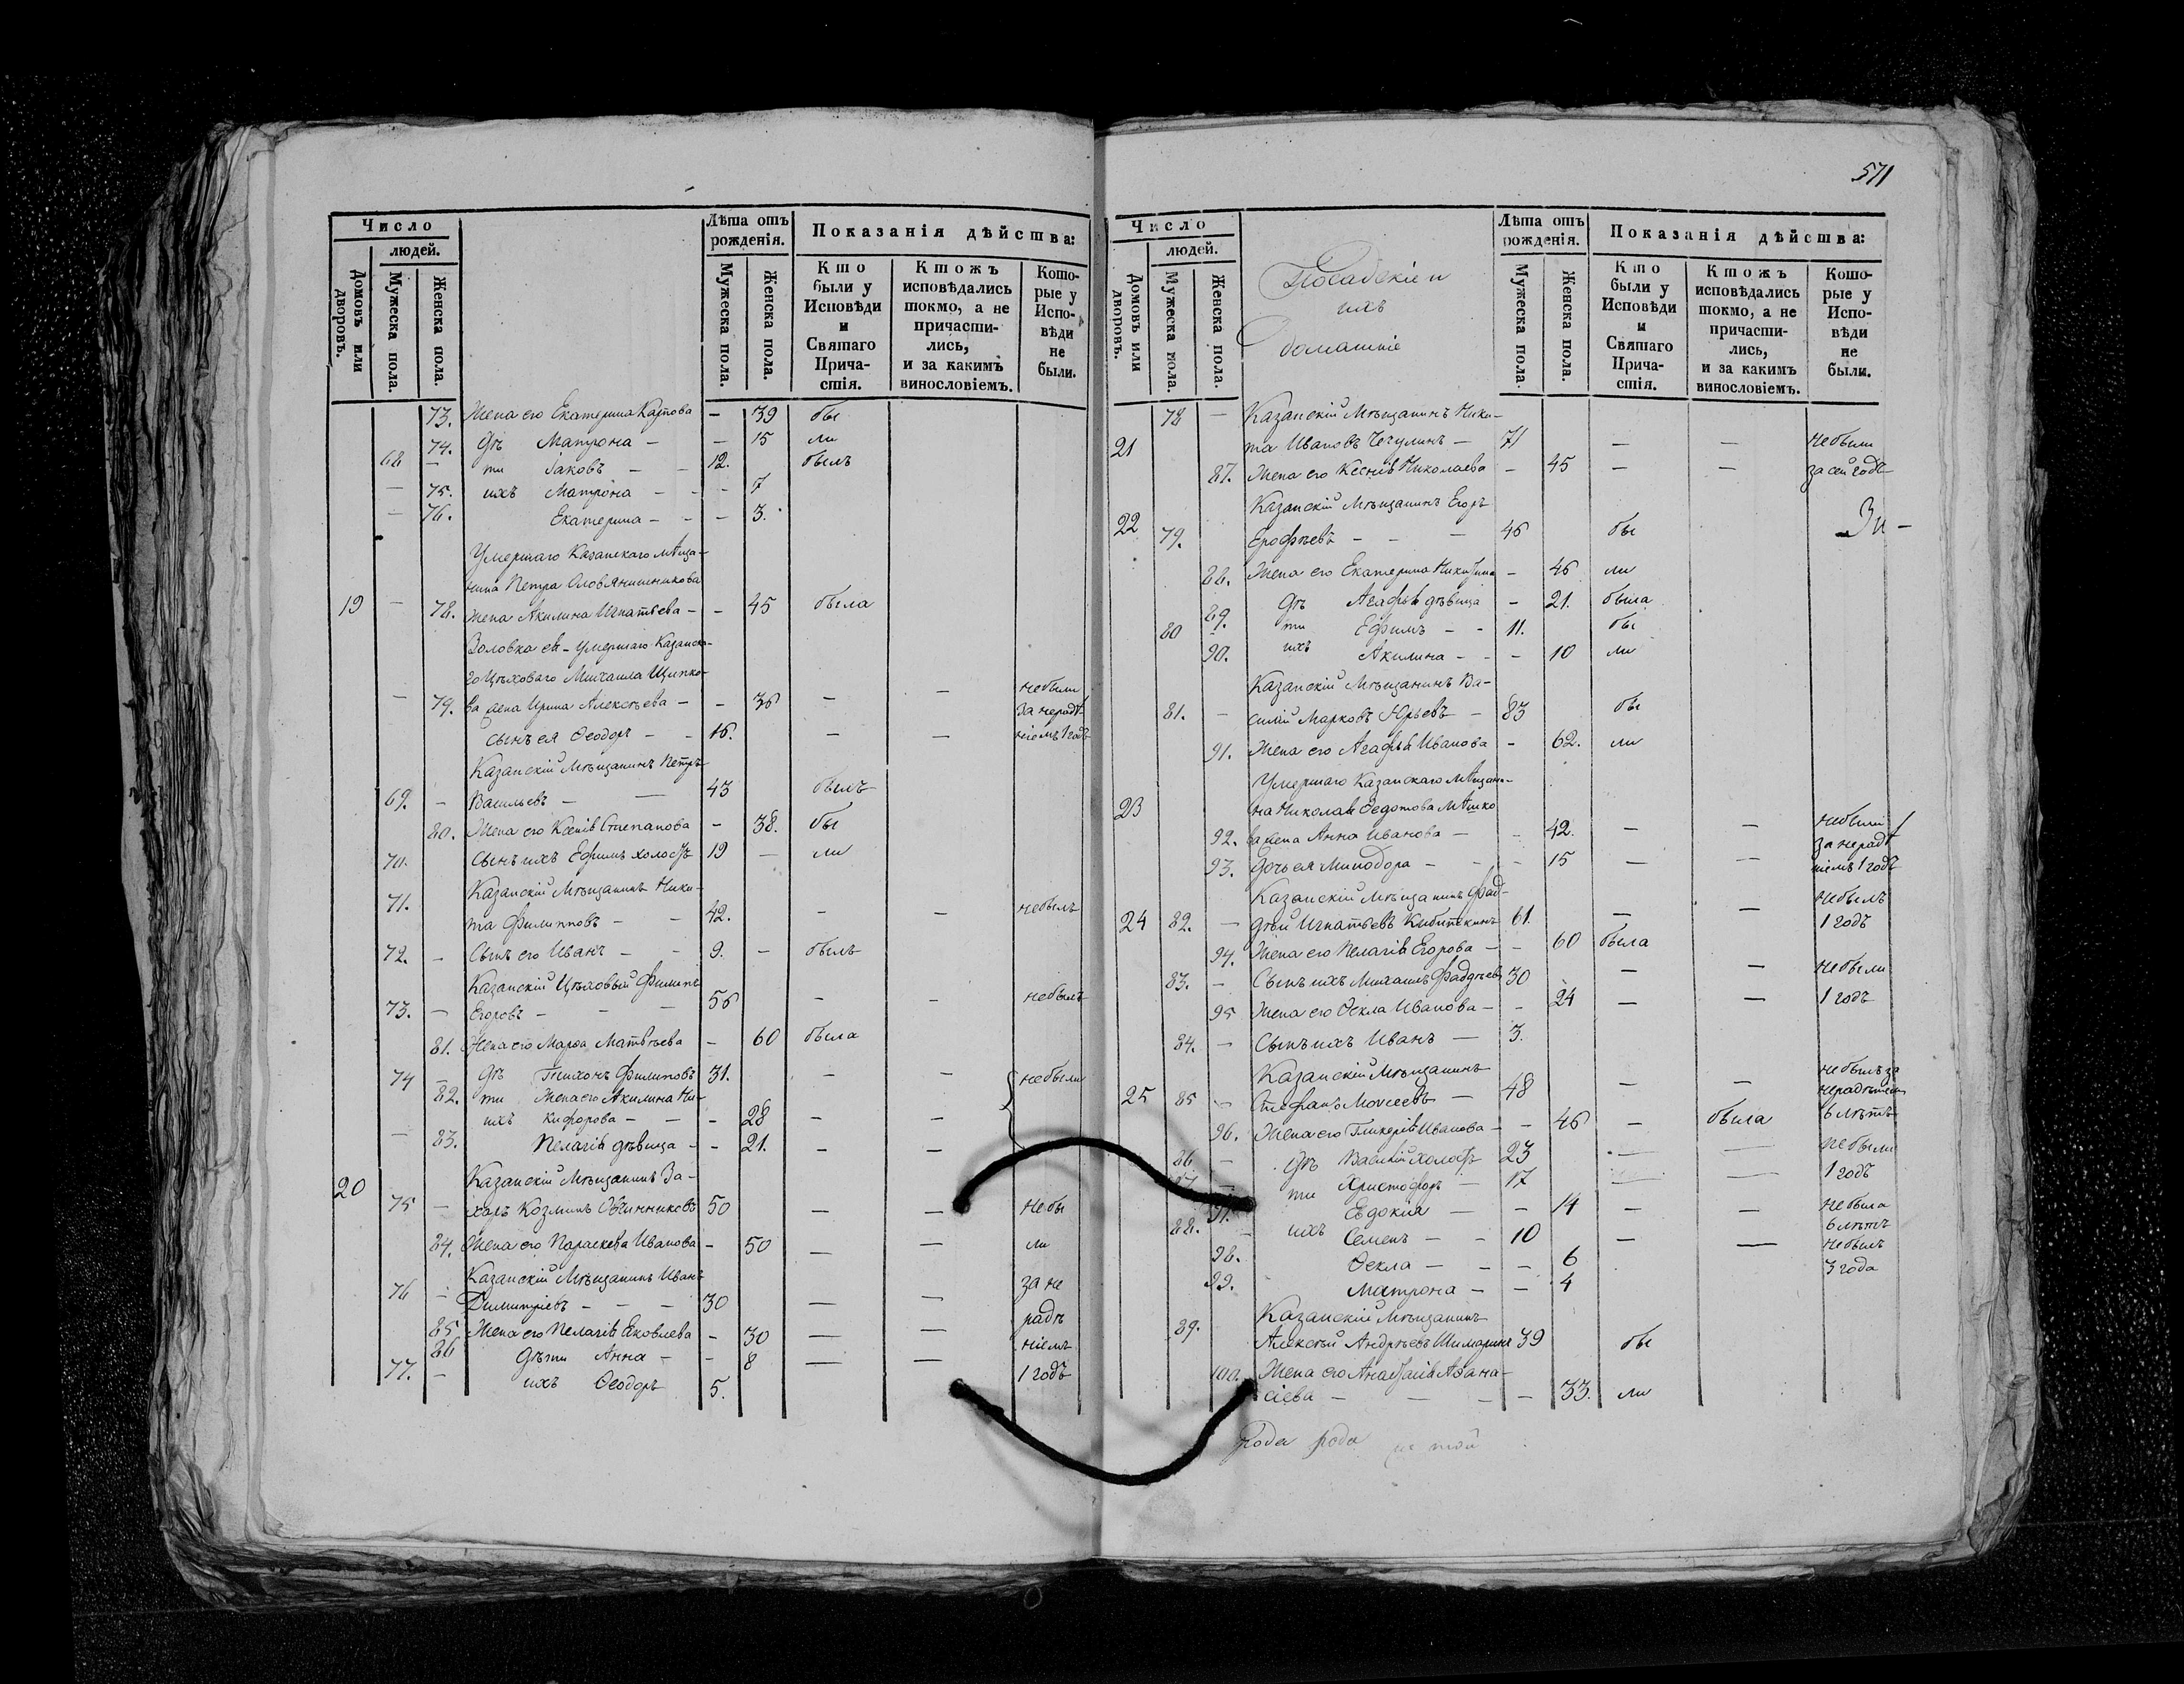 571
Число
людей.
Домовъ или дворовъ.
Мужеска пола.
Женска пола.
Лѣта отъ рожденія.
Мужеска пола.
Женска пола.
Показанія дѣйства:
Кто были у Исповѣди и Святаго Причастія.
Ктожъ исповѣдались токмо, а не причастились, и за какимъ винословіемъ.
Которые у Исповѣди не были.
73. Жена его Екатерина Карпова – 39 бы
74. дѣ Матрона – – 15 ли
68 – ти Іаковъ – – 12. былъ
– 75. ихъ Матрона – – – 7
– 76. Екатерина – – – 3.
Умершаго Казанскаго мѣща-
нина Петра Оловянишникова
19 – 78. жена Акилина Игнатьева – – 45 была
Золовка ея – умершаго Казанска-
го Цѣховаго Михаила Щипко-
– 79. ва жена Ирина Алексѣева – – 36 – – небыли
за нерадѣ-
сынъ ея Ѳеодоръ – – 16. – – ніемъ 1 годъ
Казанскій Мѣщанинъ Петръ
69. – Васильевъ – — 43 былъ
80. Жена его Ксенія Степанова – 38. бы
70. сынъ ихъ Ефимъ холостъ 19 — ли
Казанскій Мѣщанинъ Ники-
71. та Филипповъ – – 42. – – небылъ
72. – Сынъ его Иванъ – – 9. – былъ
Казанскій Цѣховый Филипъ
73. – Егоровъ – – – 56 – – небылъ
81. Жена его Марѳа Матвѣева – 60 была
74 – дѣ Тихонъ Филиповъ 31. – – небыли
82. ти Жена его Акилина Ни-
ихъ кифорова – – – 28 – –
– 83. Пелагія дѣвица – – 21. – –
20 Казанскій Мѣщанинъ За-
75 – харъ Козминъ Овчинниковъ 50 — — небы
84. Жена его Параскева Иванова – 50 — — ли
Казанскій Мѣщанинъ Иванъ за не
76 – Димитріевъ – – – 30 — — радѣ
85 Жена его Пелагія Яковлева – 30 — — ніемъ
86 дѣти Анна – – 8 — — 1 годъ
77. – ихъ Ѳеодоръ 5.
Число
людей.
Домовъ или дворовъ.
Мужеска пола.
Женска пола.
Посадскіе и
ихъ
домашніе
Лѣта отъ рожденія.
Мужеска пола.
Женска пола.
Показанія дѣйства:
Кто были у Исповѣди и Святаго Причастія.
Ктожъ исповѣдались токмо, а не причастились, и за какимъ винословіемъ.
Которые у Исповѣди не были.
78 – Казанскій Мѣщанинъ Ники-
21 та Ивановъ Чегулинъ – 71 — — небыли
87. Жена его Ксенія Николаева – 45 – — за сей годъ
Казанскій Мѣщанинъ Егоръ
22 79. Ерофѣевъ – – – 46 бы
88. Жена его Екатерина Никитина – 46 ли
89. дѣ Агафья дѣвица – 21. была
80 ти Ефимъ – – 11. бы
90. ихъ Акилина – – – 10 ли
Казанскій Мѣщанинъ Ва-
81. – силій Марковъ Юрьевъ – 83 бы
91. Жена его Агафья Иванова – 62. ли
Умершаго Казанскаго мѣщани-
23 на Николая Ѳедотова Мѣшко
92. ва жена Анна Иванова – – 42. – — небыли
за нерадѣ
93. дочь ея Минодора – – – 15 — — ніемъ 1 годъ
Казанскій Мѣщанинъ Фад- небылъ
24 82. – дѣй Игнатьевъ Кибиткинъ 61. — — 1 годъ
94. Жена его Пелагія Егорова – – 60 была
83. – Сынъ ихъ Михаилъ Фаддѣевъ 30 — — небыли
95 Жена его Ѳекла Иванова – – 24 — — 1 годъ
84. – Сынъ ихъ Иванъ — 3.
Казанскій Мѣщанинъ небылъ за
25 85 – Стефанъ Моисеевъ — 48 — — нерадѣніем
96. Жена его Гликерія Иванова – – 46 – была 6 лѣтъ
86 – дѣ Василій холостъ 23 — — небыли
87 – ти Христофоръ – 17 — — 1 годъ
97. Евдокия — – 14 – — небыла
88. – ихъ Семенъ – – 10 — — 6 лѣтъ
небылъ
98. Ѳекла – – – 6 3 года
99. Матрона – – 4
Казанскій Мѣщанинъ
89. Алексѣй Андрѣевъ 39 бы
100. Жена его Анастасія Аѳана-
сіева – – – – 33. ли